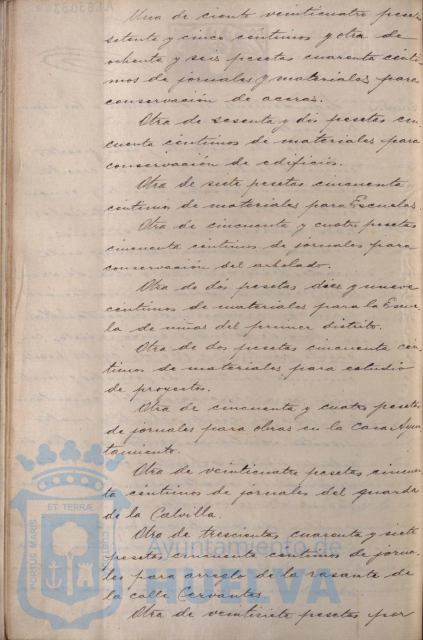 Una de ciento veinticuatro pesetas
setenta y cinco céntimos y otra de
ochenta y seis pesetas cuarenta cénti-
mos de jornales y materiales para
conservación de aceras.
Otra de sesenta y dos pesetas cin
cuenta céntimos de materiales para
conservación de edificios.
Otra de siete pesetas cincuenta
céntimos de materiales para Escuelas.
Otra de cincuenta y cuatro pesetas
cincuenta céntimos de jornales para
conservación del arbolado.
Otra de dos pesetas diez y nueve
céntimos de materiales para la Escue-
la de niñas del primer distrito.
Otra de dos pesetas cincuenta cén-
timos de materiales para estudio
de proyectos.
Otra de cincuenta y cuatro pesetas
de jornales para obras en la Casa Ayun
tamiento.
Otra de veinticuatro pesetas cincuen-
ta céntimos de jornales del guarda
de la Calvilla.
Otra de trescientas cuarenta y siete
pesetas cincuenta céntimos de jorna-
les para arreglo de la rasante de
la calle Cervantes.
Otra de veintisiete pesetas por
PORTUS MARIS
ET TERRÆ
CUSTODIA
Ayuntamiento de
HUELVA